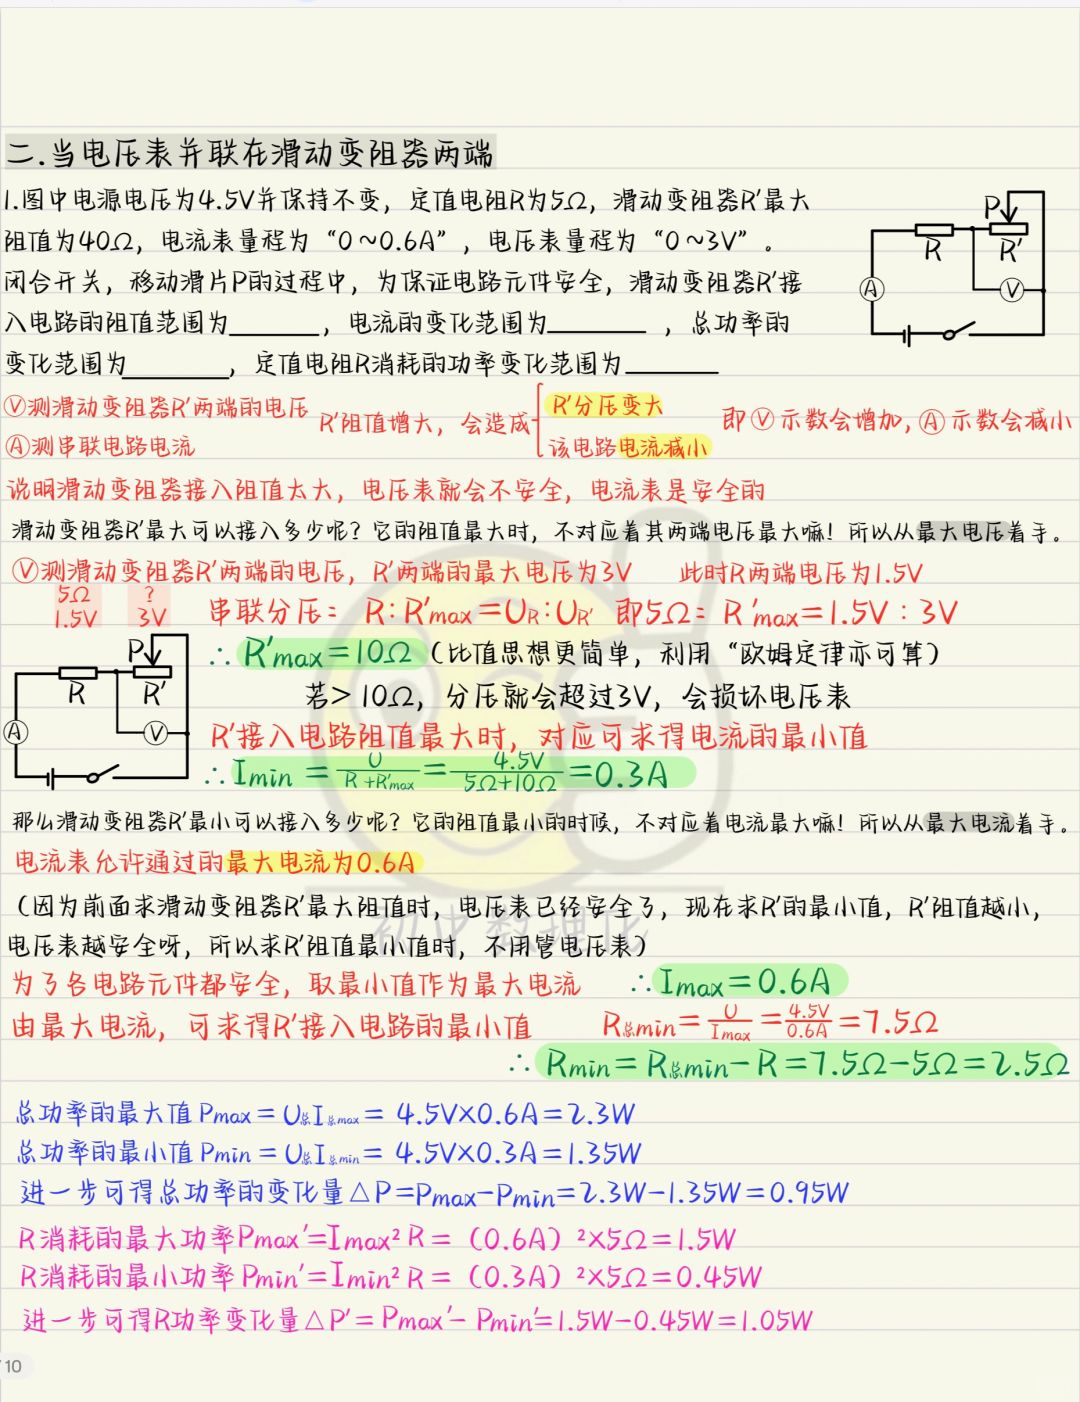 二.当电压表并联在滑动变阻器两端
1.图中电源电压为4.5V并保持不变，定值电阻R为5Ω，滑动变阻器R′最大
阻值为40Ω，电流表量程为“0～0.6A”，电压表量程为“0～3V”。
闭合开关，移动滑片P的过程中，为保证电路元件安全，滑动变阻器R′接
入电路的阻值范围为______，电流的变化范围为______，总功率的
变化范围为______，定值电阻R消耗的功率变化范围为______
P
R
R′
A
V
Ⓥ测滑动变阻器R′两端的电压
Ⓐ测串联电路电流
R′阻值增大，会造成
R′分压变大
该电路电流减小
即Ⓥ示数会增加，Ⓐ示数会减小
说明滑动变阻器接入阻值太大，电压表就会不安全，电流表是安全的
滑动变阻器R′最大可以接入多少呢？它的阻值最大时，不对应着其两端电压最大嘛！所以从最大电压着手。
Ⓥ测滑动变阻器R′两端的电压，R′两端的最大电压为3V 此时R两端电压为1.5V
5Ω ?
1.5V 3V
串联分压： R：R′max＝UR：UR′ 即5Ω：R′max＝1.5V：3V
∴R′max＝10Ω（比值思想更简单，利用“欧姆定律亦可算）
若＞10Ω，分压就会超过3V，会损坏电压表
P
R
R′
A
V
R′接入电路阻值最大时，对应可求得电流的最小值
∴Imin＝U/(R+R′max)＝4.5V/(5Ω+10Ω)＝0.3A
那么滑动变阻器R′最小可以接入多少呢？它的阻值最小的时候，不对应着电流最大嘛！所以从最大电流着手。
电流表允许通过的最大电流为0.6A
（因为前面求滑动变阻器R′最大阻值时，电压表已经安全了，现在求R′的最小值，R′阻值越小，
电压表越安全呀，所以求R′阻值最小值时，不用管电压表）
初中数理化
为了各电路元件都安全，取最小值作为最大电流 ∴Imax＝0.6A
由最大电流，可求得R′接入电路的最小值 R总min＝U/Imax＝4.5V/0.6A＝7.5Ω
∴Rmin＝R总min－R＝7.5Ω－5Ω＝2.5Ω
总功率的最大值Pmax＝U总I总max＝4.5V×0.6A＝2.3W
总功率的最小值Pmin＝U总I总min＝4.5V×0.3A＝1.35W
进一步可得总功率的变化量△P＝Pmax－Pmin＝2.3W－1.35W＝0.95W
R消耗的最大功率Pmax′＝Imax²R＝（0.6A）²×5Ω＝1.5W
R消耗的最小功率Pmin′＝Imin²R＝（0.3A）²×5Ω＝0.45W
进一步可得R功率变化量△P′＝Pmax′－Pmin′＝1.5W－0.45W＝1.05W
10